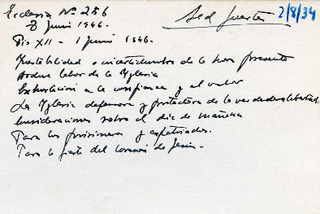 Ecclesia Nº 256 Sed fuertes 2/8/34
8 Junio 1946.
Pio XII - 1 Junio 1946.
Inestabilidad e incertidumbre de la hora presente
Ardua labor de la Iglesia
Exhortación a la confianza y al valor
La Iglesia defensora y protectora de la verdadera libertad
Consideraciones sobre el día de mañana
Para los prisioneros y expatriados.
Para la fiesta del Corazón de Jesús.-